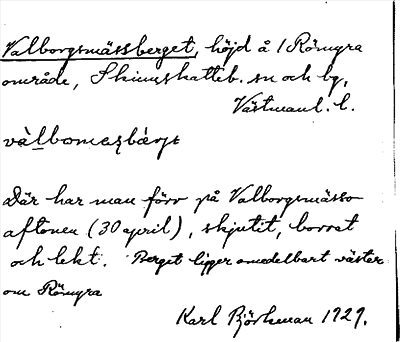 Valborgsmässberget, höjd å / Römyra
område, Skinnskatteb. sn och bg,
Västmanl. l.
vàlbomasbærjt
Där har man förr på Valborgsmässo
aftonen (30 april), skjutit, borrat
och lekt. Berget ligger omedelbart väster
om Römyra
Karl Björkman 1929.